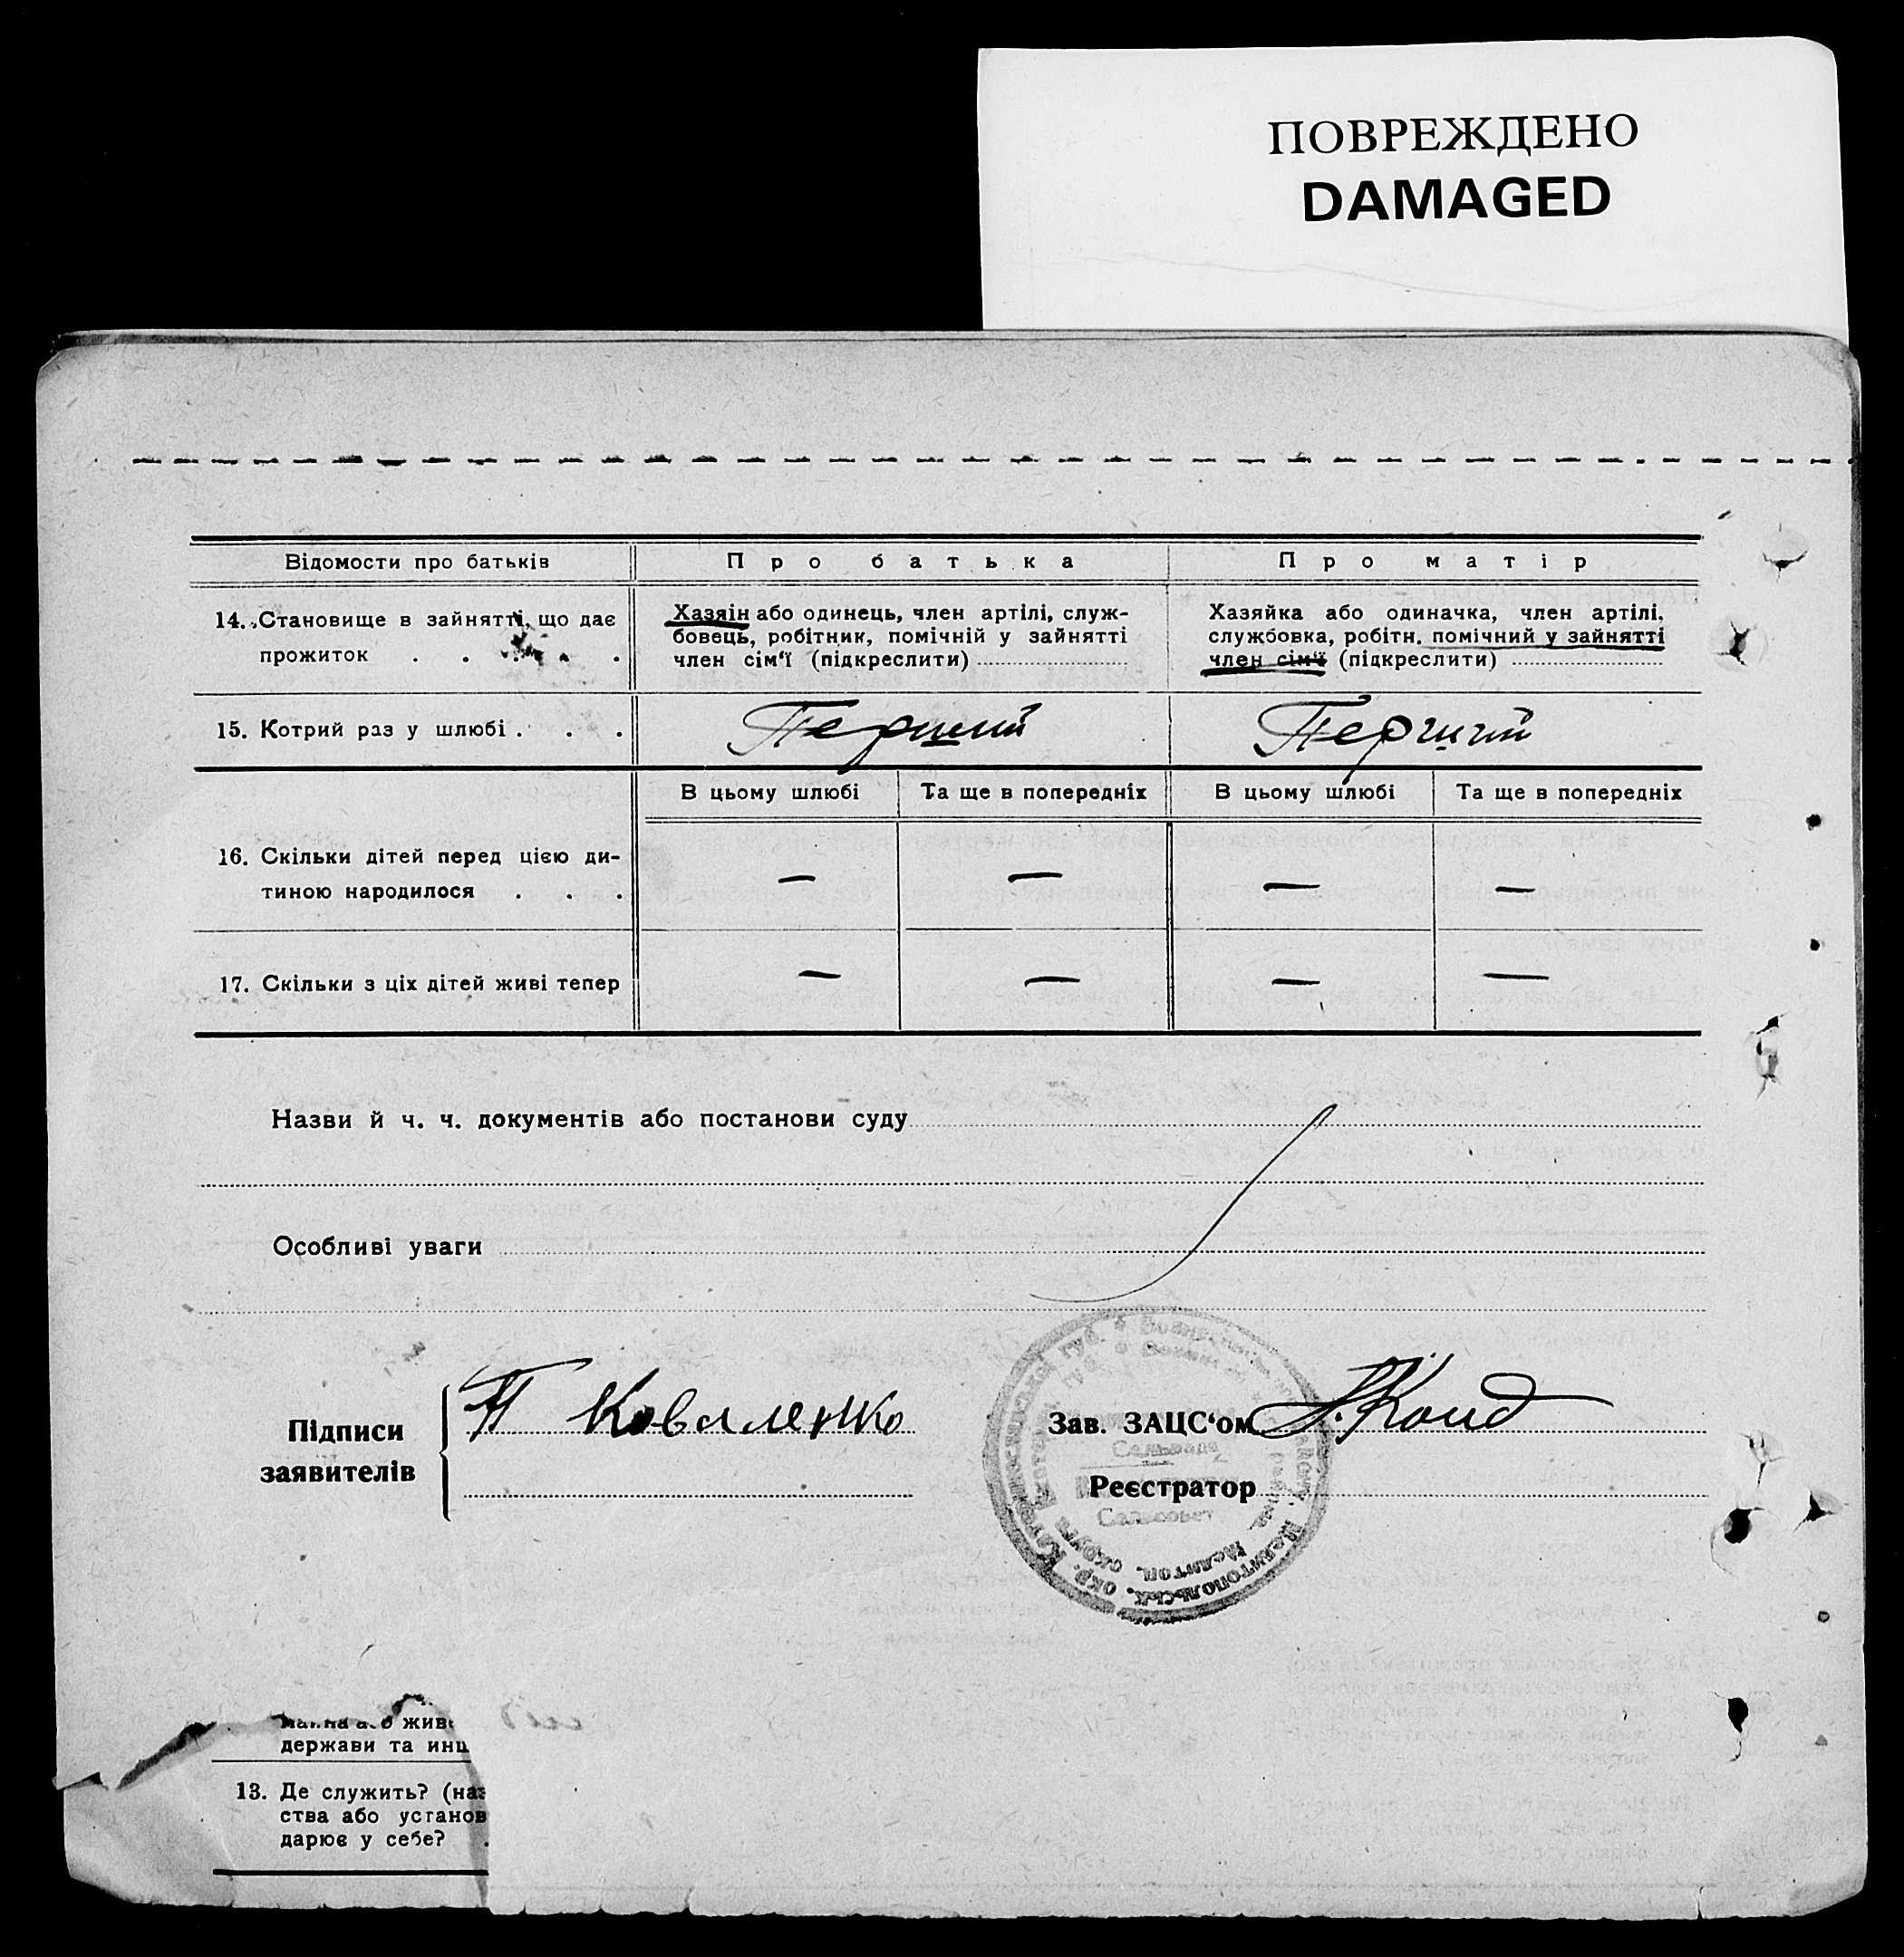 ПОВРЕЖДЕНО
DAMAGED
Відомости про батьків
Про батька
Про матір
14. Становище в зайнятті, що дає
прожиток . . . . .
Хазяїн або одинець, член артілі, служ-
бовець, робітник, помічній у зайнятті
член сім‘ї (підкреслити)
Хазяйка або одиначка, член артілі,
службовка, робітн. помічний у зайнятті
член сім‘ї (підкреслити)
15. Котрий раз у шлюбі . . .
Перший
Перший
В цьому шлюбі
Та ще в попередніх
В цьому шлюбі
Та ще в попередніх
16. Скільки дітей перед цією ди-
тиною народилося . . .
— — — —
17. Скільки з ціх дітей живі тепер
— — — —
Назви й ч. ч. документів або постанови суду
Особливі уваги
Підписи
заявителів
П Коваленко
Зав. ЗАЦС‘ом
Реєстратор
Сельрада
Сельсовет
Мелитопольськ. окр.
Мелитоп. округа
жив
держави та инш
13. Де служить? (наз
ства або установ
дарює у себе? .